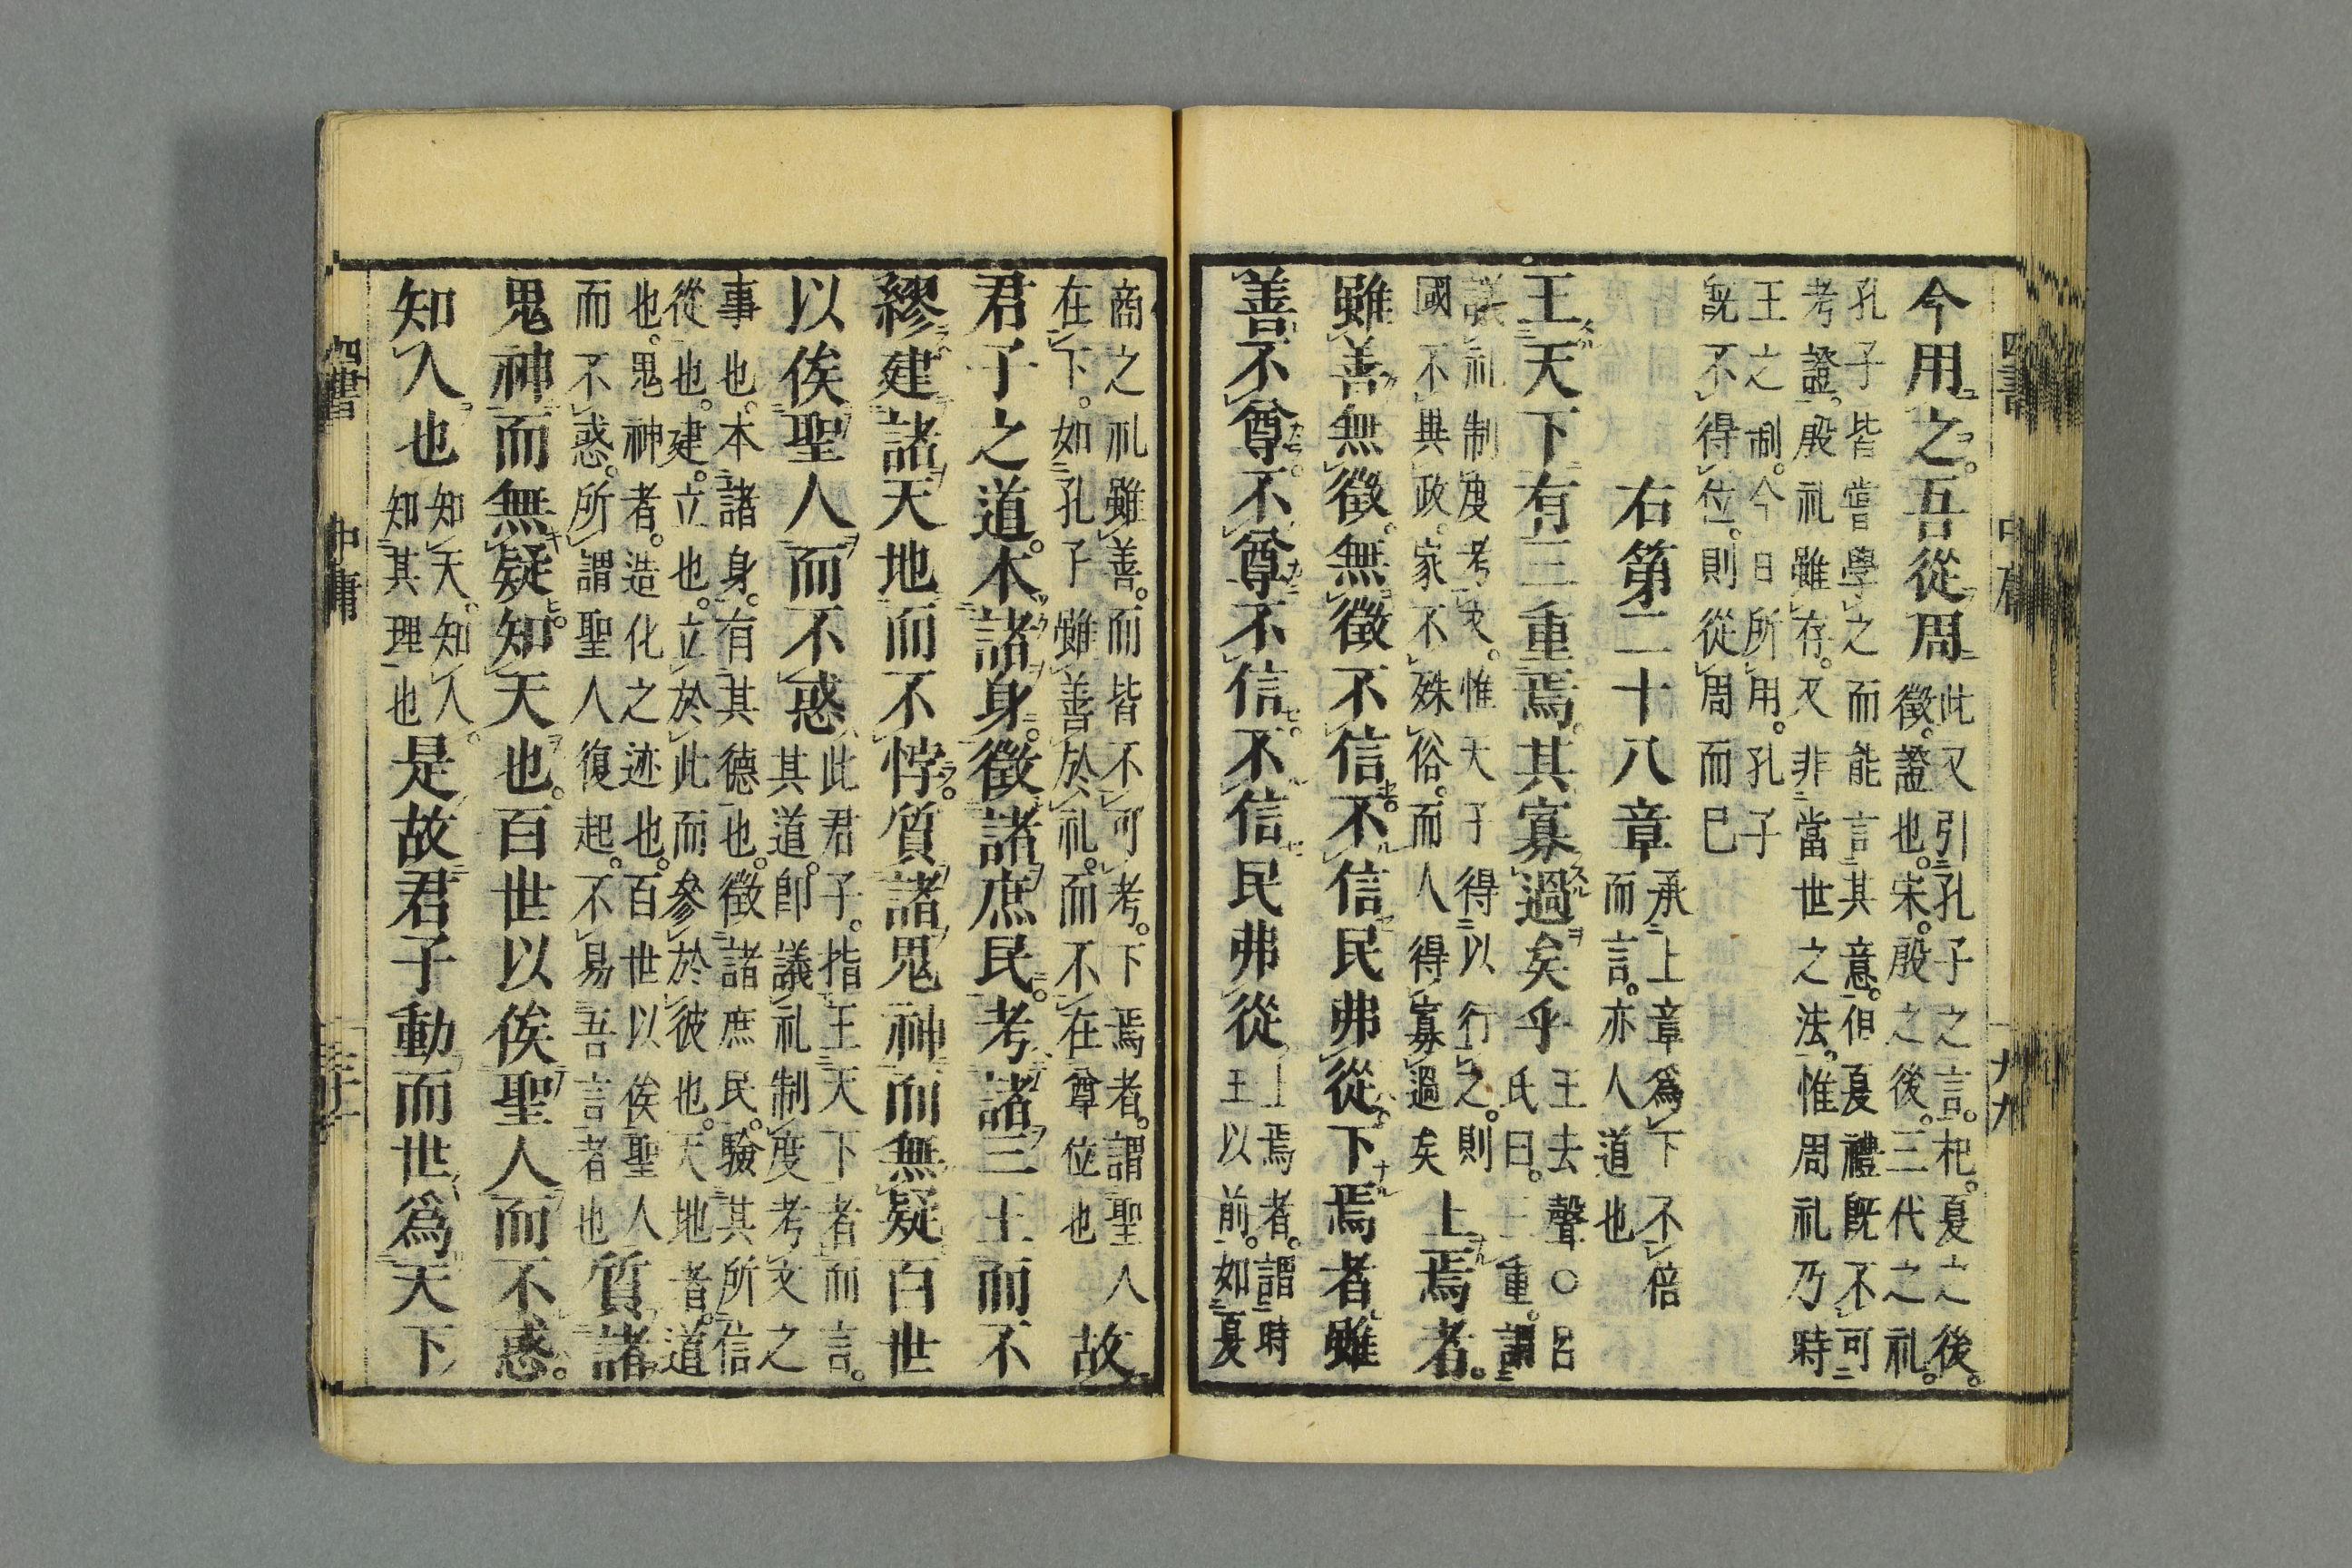 今用之。吾從周
此又引孔子之言。杞。夏之後。
徵。證也。宋。殷之後。三代之礼。
孔子皆嘗學之而能言其意。但夏禮既不可
考證。殷礼雖存。又非當世之法。惟周礼乃時
王之制。今日所用。孔子
既不得位。則從周而已
右第二十八章
承上章爲下不倍
而言。亦人道也
王天下有三重焉。其寡過矣乎
王去聲○呂
氏曰。三重。謂
議礼制度考文。惟天子得以行之。則
國不異政。家不殊俗。而人得寡過矣
上焉者。
雖善無徵。無徵不信。不信民弗從。下焉者雖
善不尊。不尊不信。不信民弗從
上焉者。謂時
王以前。如夏
商之礼雖善。而皆不可考。下焉者。謂聖人
在下。如孔子雖善於礼。而不在尊位也
故
君子之道。本諸身。徵諸庶民。考諸三王而不
繆建諸天地而不悖。質諸鬼神而無疑百世
以俟聖人而不惑
此君子。指王天下者而言。
其道。即議礼制度考文之
事也。本諸身。有其德也。徵諸庶民。驗其所信
從也。建。立也。立於此而參於彼也。天地者。道
也。鬼神者。造化之迹也。百世以俟聖人
而不惑。所謂聖人復起。不易吾言者也
質諸
鬼神而無疑。知天也。百世以俟聖人而不惑。
知人也
知天。知人。
知其理也
是故君子動而世爲天下
四書
中庸
四書
中庸